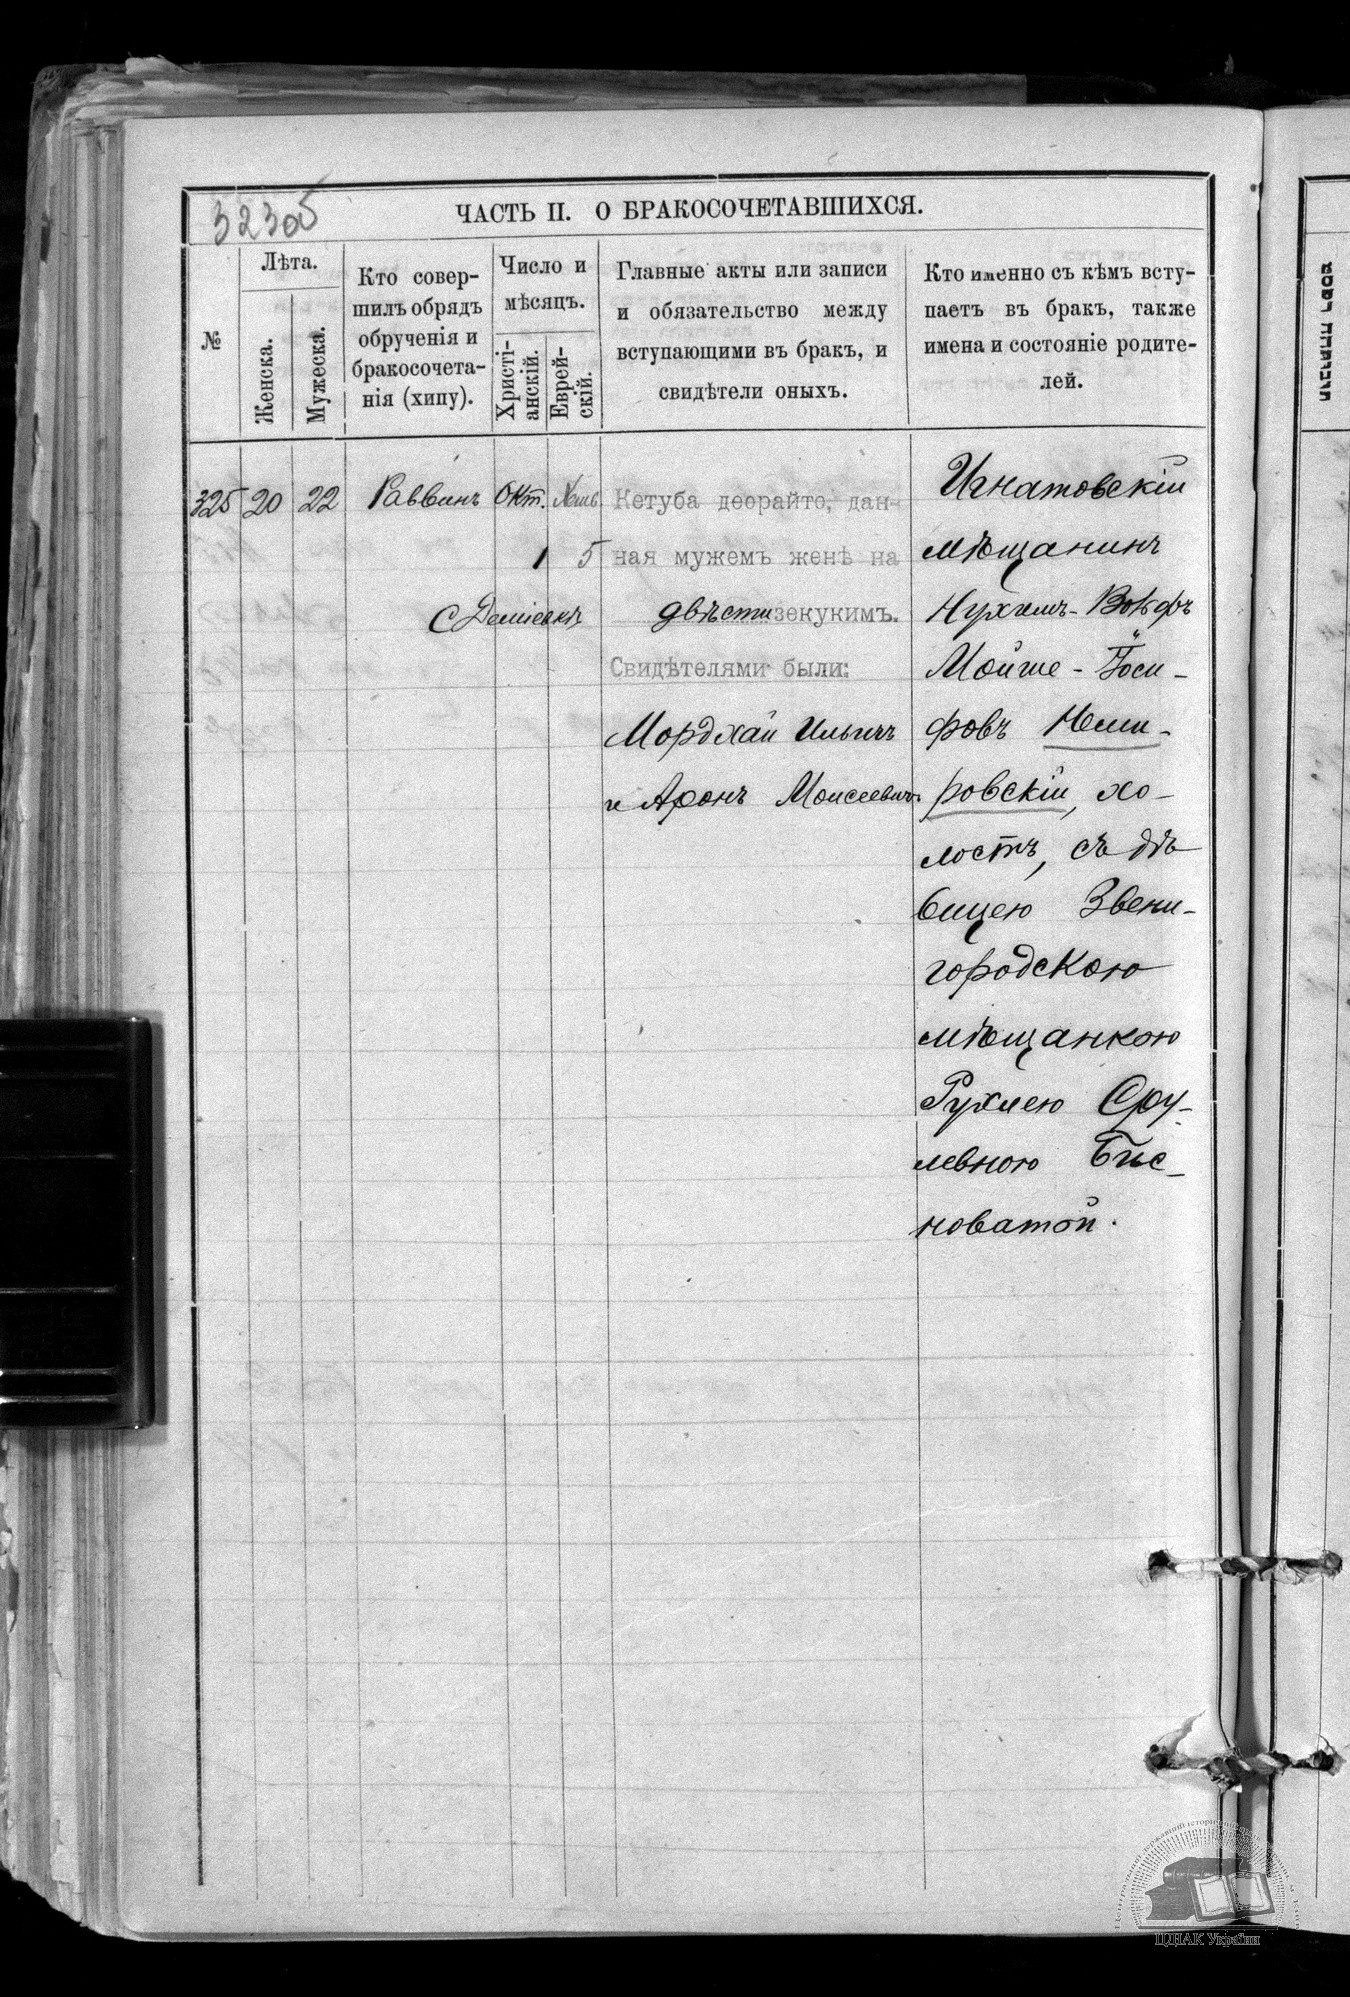 32305
ЧАСТЬ II. О БРАКОСОЧЕТАВШИХСЯ.
№
Лѣта.
Женска.
Мужеска.
Кто совер-
шилъ обрядъ
обрученія и
бракосочета-
нія (хипу).
Число и
мѣсяцъ.
Христі-
анскій.
Еврей-
скій.
Главные акты или записи
и обязательство между
вступающими въ бракъ, и
свидѣтели оныхъ.
Кто именно съ кѣмъ всту-
паетъ въ бракъ, также
имена и состояніе родите-
лей.
325 20 22 Раввинъ Окт. Хешв
1 5
С Деміевкѣ
Кетуба деорайто, дан-
ная мужемъ женѣ на
двѣсти зекукимъ.
Свидѣтелями были:
Мордхай Ильичъ
и Аронъ Моисеевичъ
Игнатовскій
мѣщанинъ
Нухимъ-Вольфъ
Мойше-Іоси-
фовъ Неми-
ровскій, хо-
лостъ, съ дѣ
вицею Звени-
городскою
мѣщанкою
Рухлею Сру-
левною Бѣс-
новатой.
ЦДІАК України